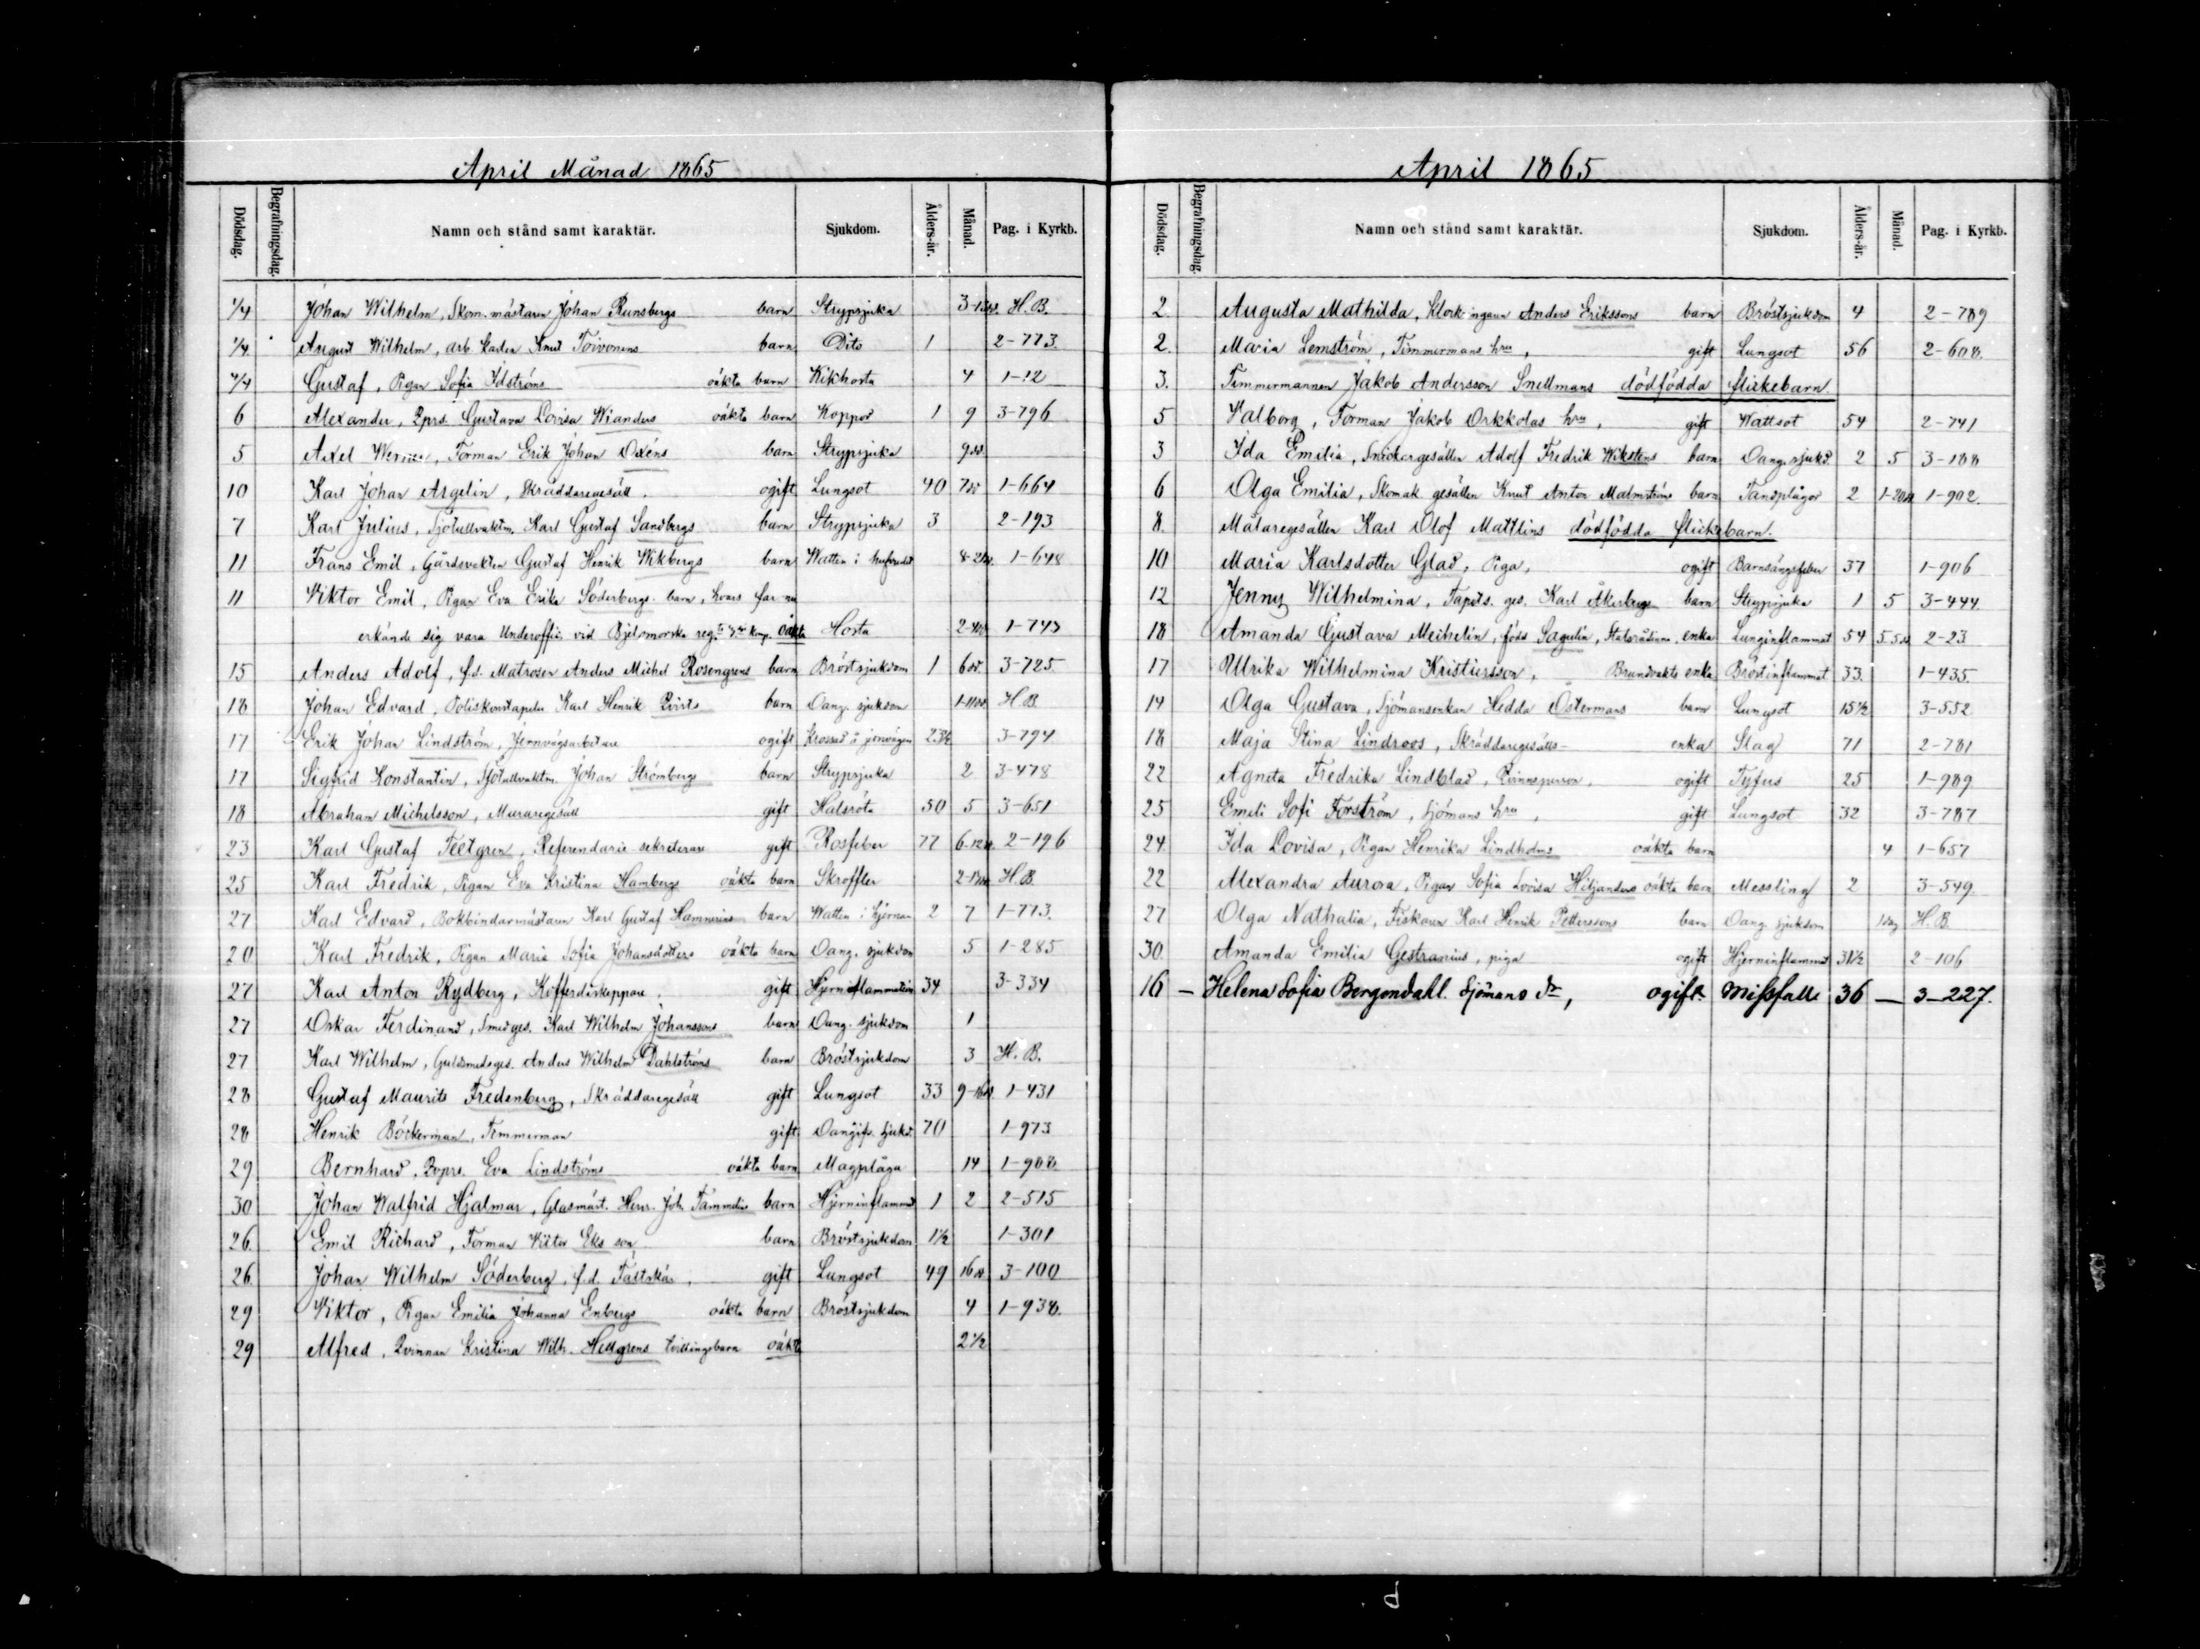 April Månad 1865
Dödsdag. Begrafningsdag. Namn och stånd samt karaktär. Sjukdom. Ålders-år. Månad. Pag. i Kyrkb.
1/4 Johan Wilhelm, Skom. mästaren Johan Runsbergs barn Strypsjuka 3- H.B.
1/4 August Wilhelm, arb. karlen Knut Toivonens barn Dito 1 2-773.
4/4 Gustaf, Pigan Sofia Idströms oäkta barn Kikhosta 4 1-12
6 Alexander, Qprs. Gustava Lovisa Wianders oäkta barn Koppor 1 9 3-796
5 Axel Werner, Forman Erik Johan Oxéns barn Strypsjuka
10 Karl Johan Argelin, Skräddaregesäll. ogift Lungsot 40 1-664
7 Karl Julius, Sjötullvaktm. Karl Gustaf Sandbergs barn Strypsjuka 3 2-193
11 Frans Emil, Gårdsvakten Gustaf Henrik Wikbergs barn Watten i hufvudet 1-648
11 Viktor Emil, Pigan Eva Erika Söderbergs barn, hvars far
erkände sig vara Underoffic. vid Björneborska oäkta Hosta 1-743
15 Anders Adolf, f.d. Matrosen Anders Michel Rosengrens barn Bröstsjukdom 1 3-725
18 Johan Edvard, Poliskonstapeln Karl Henrik Qvists barn Oang. sjukdom H.B.
17 Erik Johan Lindström, Jernvägsarbetare ogift Krossad å jernvägen 23½ 3-794
17 Sigfrid Konstantin, Sjötullvaktm. Johan Strömbergs barn Strypsjuka 2 3-478
18 Abraham Michelsson, Muraregesäll gift Halsröta 50 5 3-651
23 Karl Gustaf Teetgren, Referendarie sekreterare gift Rosfeber 77 2-196
25 Karl Fredrik, Pigan Eva Kristina Hambergs oäkta barn Skroffler H.B.
27 Karl Edvard, Bokbindarmästaren Karl Gustaf Hamnerins barn Watten i hjernan 2 7 1-773.
20 Karl Fredrik, Pigan Maria Sofia Johansdotters oäkta barn Oang. sjukdom 5 1-285
27 Karl Anton Rydberg, Kofferdiskeppare, gift Hjerninflammation 34 3-334
27 Oskar Ferdinand, Smedges. Karl Wilhelm Johanssons barn Oang. sjukdom 1
27 Karl Wilhelm, Guldsmedsges. Anders Wilhelm Dahlströms barn Bröstsjukdom 3 H.B.
28 Gustaf Maurits Fredenberg, Skräddaregesäll gift Lungsot 33 1-431
28 Henrik Böckerman, Timmerman gift Oangifv. sjukd. 70 1-973
29 Bernhard, Qvprs. Eva Lindströms oäkta barn Magplåga 14 1-908
30 Johan Walfrid Hjalmar, Glasmäst. Henr. Joh. Tammelins barn Hjerninflammat 1 2 2-515
26 Emil Richard, Forman Viktor Eks son barn Bröstsjukdom 1½ 1-301
26 Johan Wilhelm Söderberg, f.d. Fältskär, gift Lungsot 49 3-100
29 Viktor, Pigan Emilia Johanna Enbergs oäkta barn Bröstsjukdom 4 1-938.
29 Alfred, Qvinnan Kristina Wilh. Hellgrens tvillingsbarn oäkta 2½
April 1865
Dödsdag. Begrafningsdag. Namn och stånd samt karaktär. Sjukdom. Ålders-år. Månad. Pag. i Kyrkb.
2. Augusta Mathilda, Klockringaren Anders Erikssons barn Bröstsjukdom 4 2-789
2. Maria Lemström, Timmermans hru, gift Lungsot 56 2-608.
3. Timmermannen Jakob Andersson Snellmans dödfödda flickebarn.
5 Valborg, Forman Jakob Orkkolas hru, gift Wattsot 54 2-741
3 Ida Emilia, Snickaregesällen Adolf Fredrik Wikstens barn Oang. sjukd. 2 5 3-188
6 Olga Emilia, Skomak. gesällen Knut Anton Malmströms barn Tandplågor 2 1-902.
8. Målaregesällen Karl Olof Mattlins dödfödda flickebarn.
10 Maria Karlsdotter Glad, Piga, ogift Barnsängsfeber 37 1-906
12 Jenny Wilhelmina, Tapets. ges. Karl Åkerbergs barn Strypsjuka 1 5 3-444.
18 Amanda Gustava Meihelin, född Sagulin, Statsrådinna, enka Lunginflammat 54 2-23
17 Ulrika Wilhelmina Kristiersson, Brandvakts enka Bröstinflammat 33. 1-435
14 Olga Gustava, Sjömansenkan Hedda Östermans barn Lungsot 15½ 3-552
18 Maja Stina Lindroos, Skräddaregesälls- enka Slag 71 2-781
22 Agneta Fredrika Lindblad, Qvinnsperson, ogift Tyfus 25 1-989
25 Emeli Sofi Forström, Sjömans hru, gift Lungsot 32 3-787
24. Ida Lovisa, Pigan Henrika Lindholms oäkta barn 4 1-657
22 Alexandra Aurora, Pigan Sofia Lovisa Hiljanders oäkta barn Messling 2 3-549.
27 Olga Nathalia, Fiskaren Karl Henrik Petterssons barn Oang. sjukdom 1 dag H.B.
30. Amanda Emilia Gestranius, piga ogift Hjerninflammat 31½ 2-106
16 — Helena Sofia Bergendahl. Sjömans dr, ogift Missfalle 36 — 3-227.